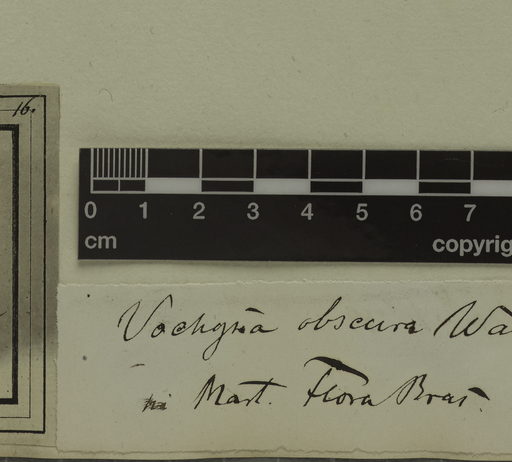 16.
0 1 2 3 4 5 6 7
cm copyrig
Vochysia obscura Wa
in Mart. Flora Bras.